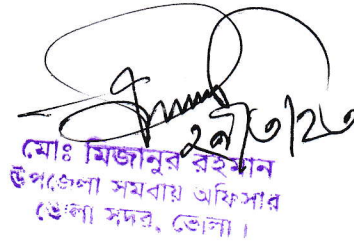 ২৯/৩/২৩
মোঃ মিজানুর রহমান
উপজেলা সমবায় অফিসার
ভোলা সদর, ভোলা।